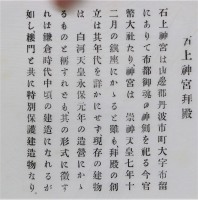 石上神宮拝殿
石上神宮は山邊郡丹波市町大字布留
にありて布都御魂の神劍を祀る今官
幣大社たり、神宮は　崇神天皇七年十
一月の鎭座にかゝると雖も拜殿の創
立は其年代を詳かにせず現存の建物
は　白河天皇永保元年の造營にかゝ
るものと稱すれども其の形式に徴す
れば鎌倉時代中頃の建造になれるが
如し樓門と共に特別保護建造物なり